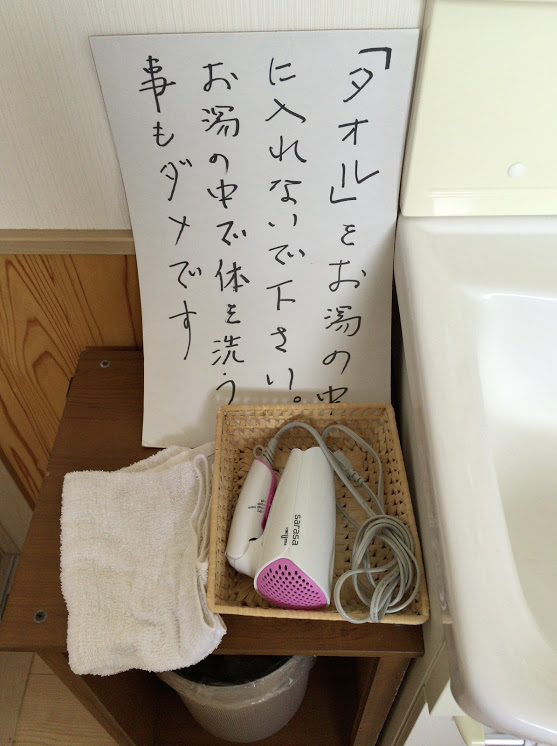 「タオル」をお湯の中
に入れないで下さい。
お湯の中で体を洗う
事もダメです
sarasa